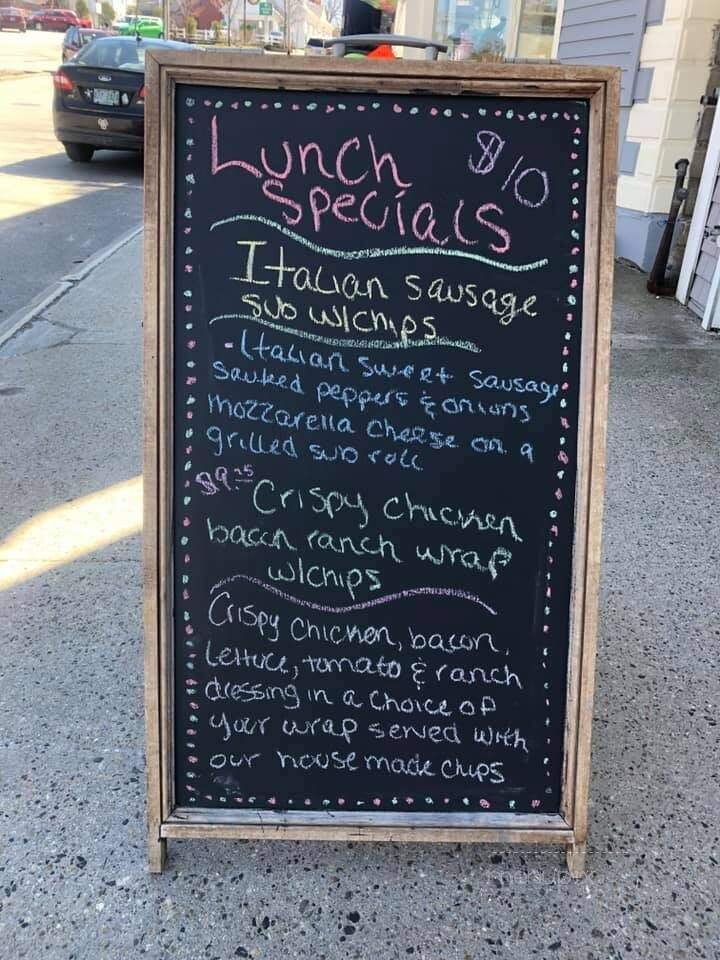 Lunch $10
Specials
Italian sausage
sub w/chips
-Italian sweet sausage
sauted peppers & onions
mozzarella cheese on a
grilled sub roll
$9.25 Crispy chicken
bacon ranch wrap
w/chips
Crispy Chicken, bacon,
Lettuce, tomato & ranch
dressing in a choice of
your wrap served with
our house made chips